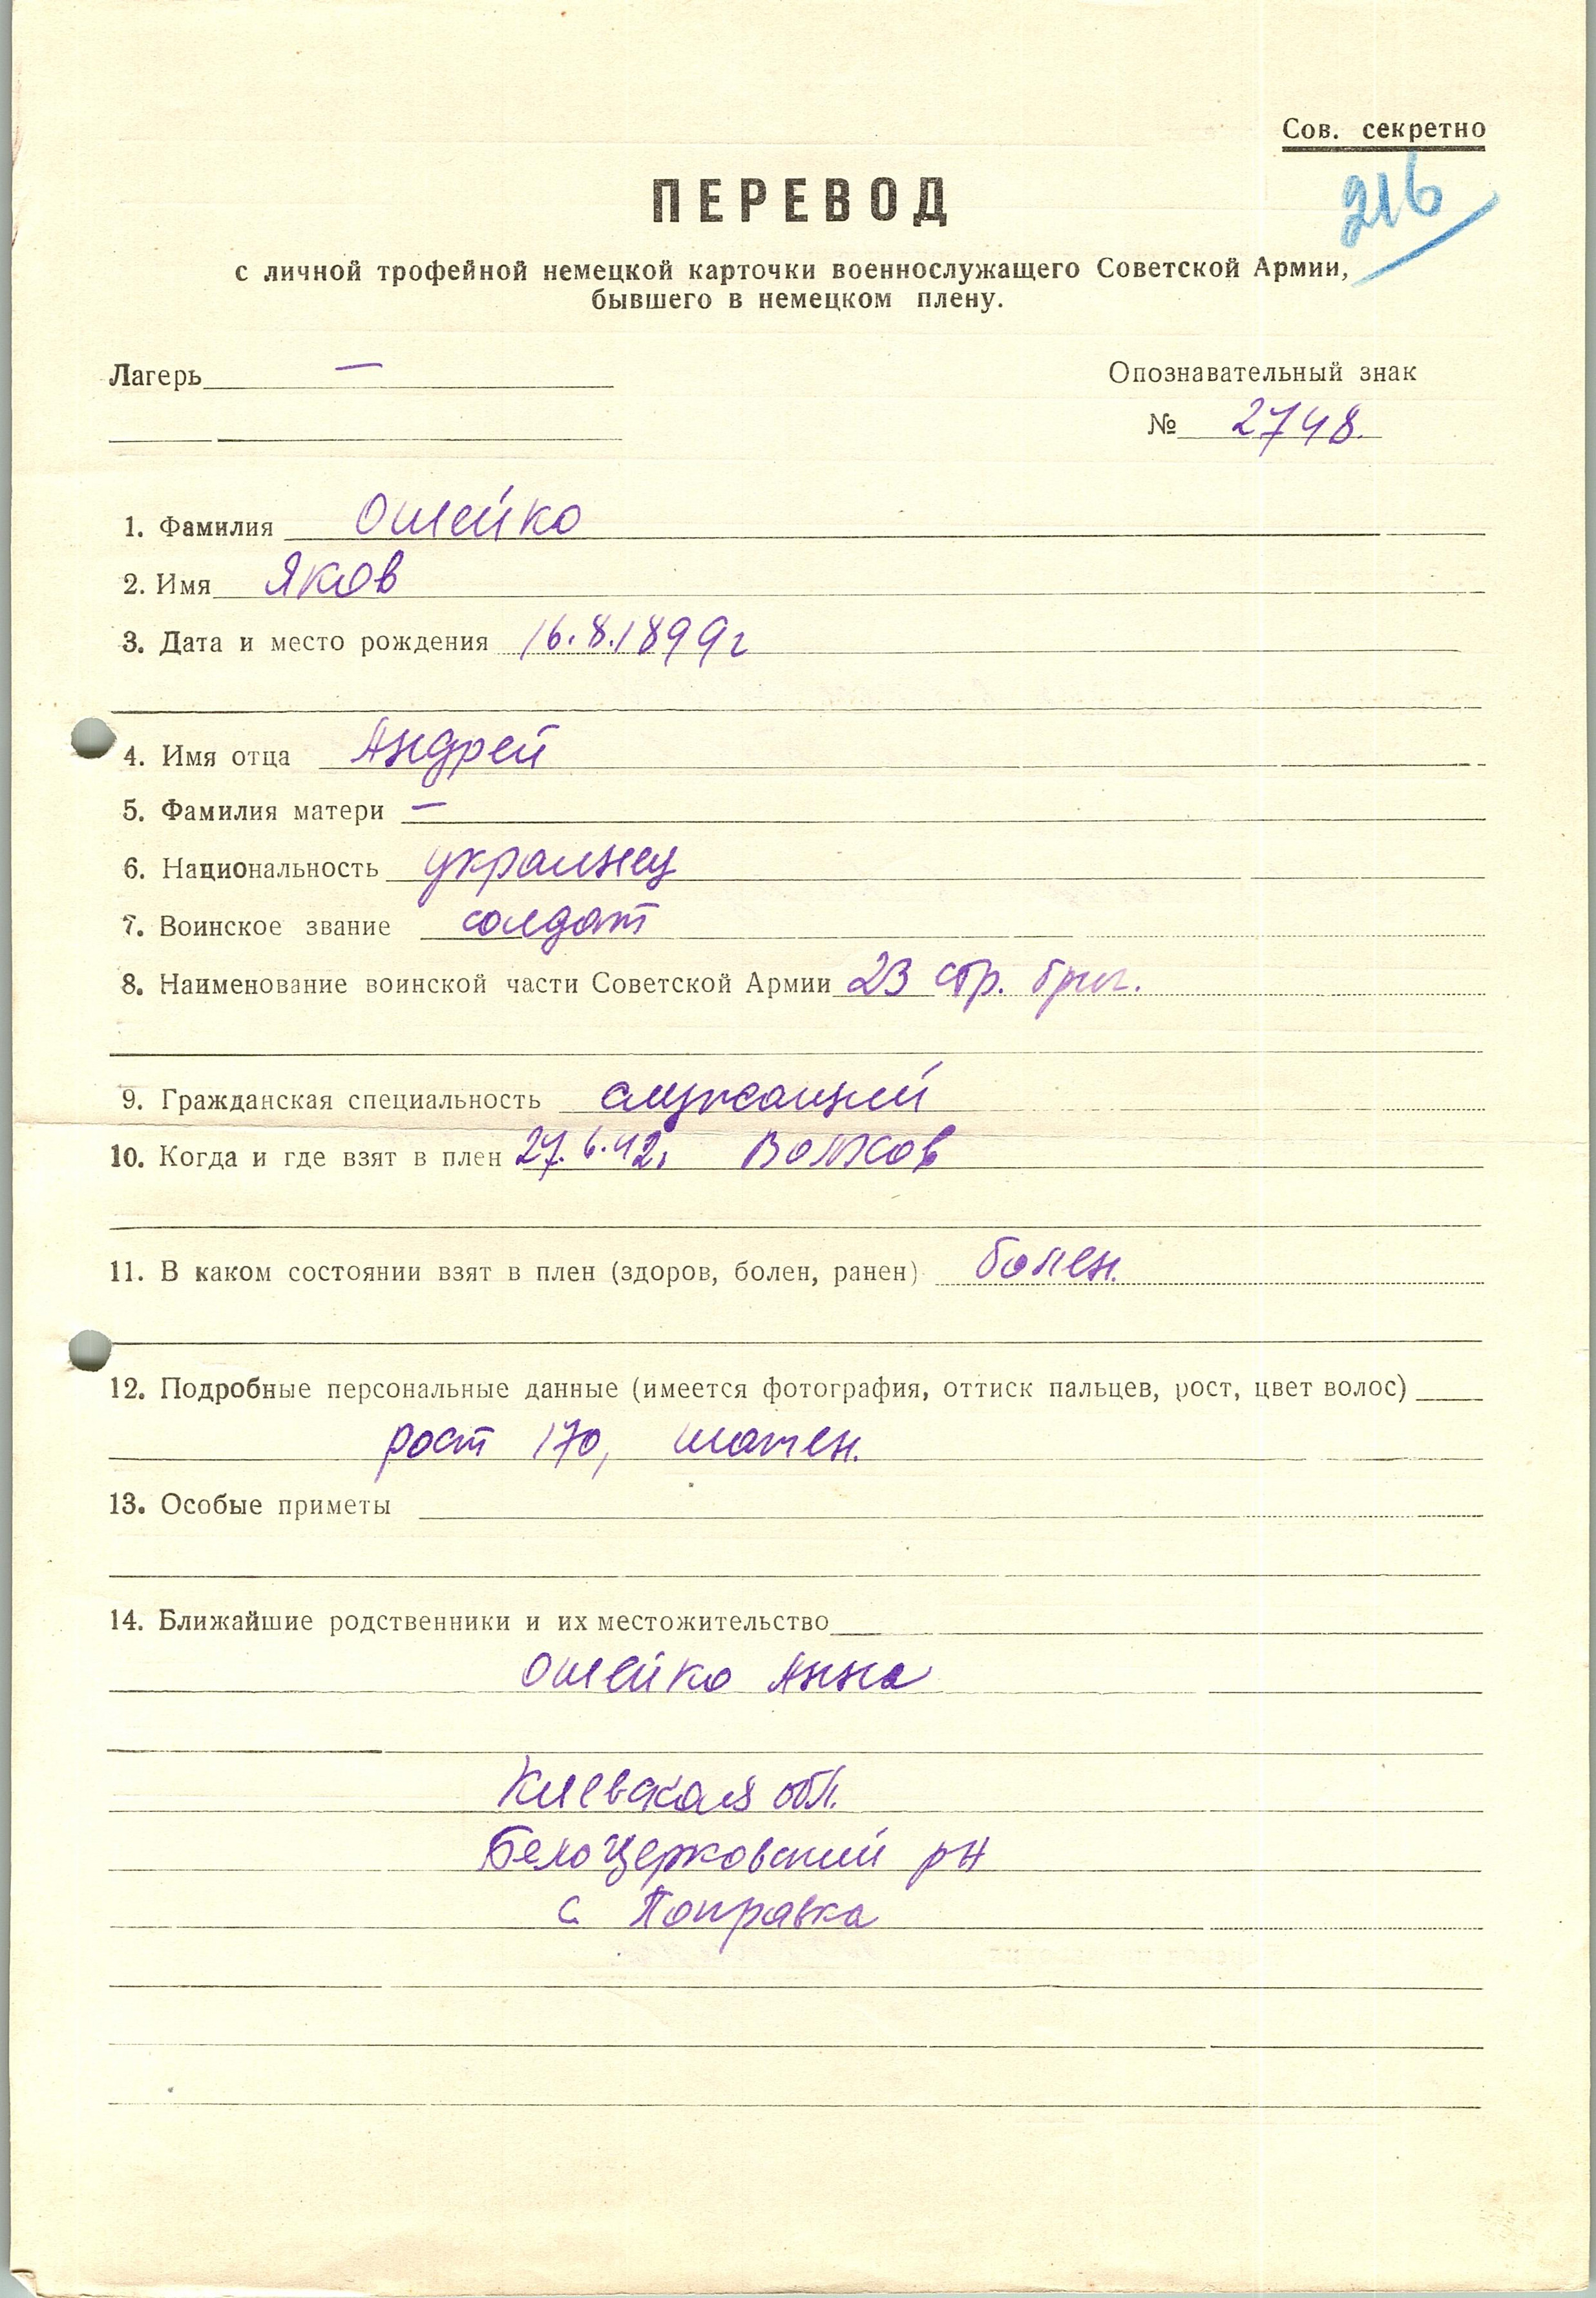 Сов. секретно
216
ПЕРЕВОД
с личной трофейной немецкой карточки военнослужащего Советской Армии,
бывшего в немецком плену.
Лагерь —
Опознавательный знак
№ 2748.
1. Фамилия Ошейко
2. Имя Яков
3. Дата и место рождения 16.8.1899г
4. Имя отца Андрей
5. Фамилия матери —
6. Национальность украинец
7. Воинское звание солдат
8. Наименование воинской части Советской Армии 23 стр. бриг.
9. Гражданская специальность служащий
10. Когда и где взят в плен 27.6.42. Волхов
11. В каком состоянии взят в плен (здоров, болен, ранен) болен.
12. Подробные персональные данные (имеется фотография, оттиск пальцев, рост, цвет волос)
рост 170, шатен.
13. Особые приметы
14. Ближайшие родственники и их местожительство
Ошейко Анна
Киевская обл.
Белоцерковский рн
с Поправка